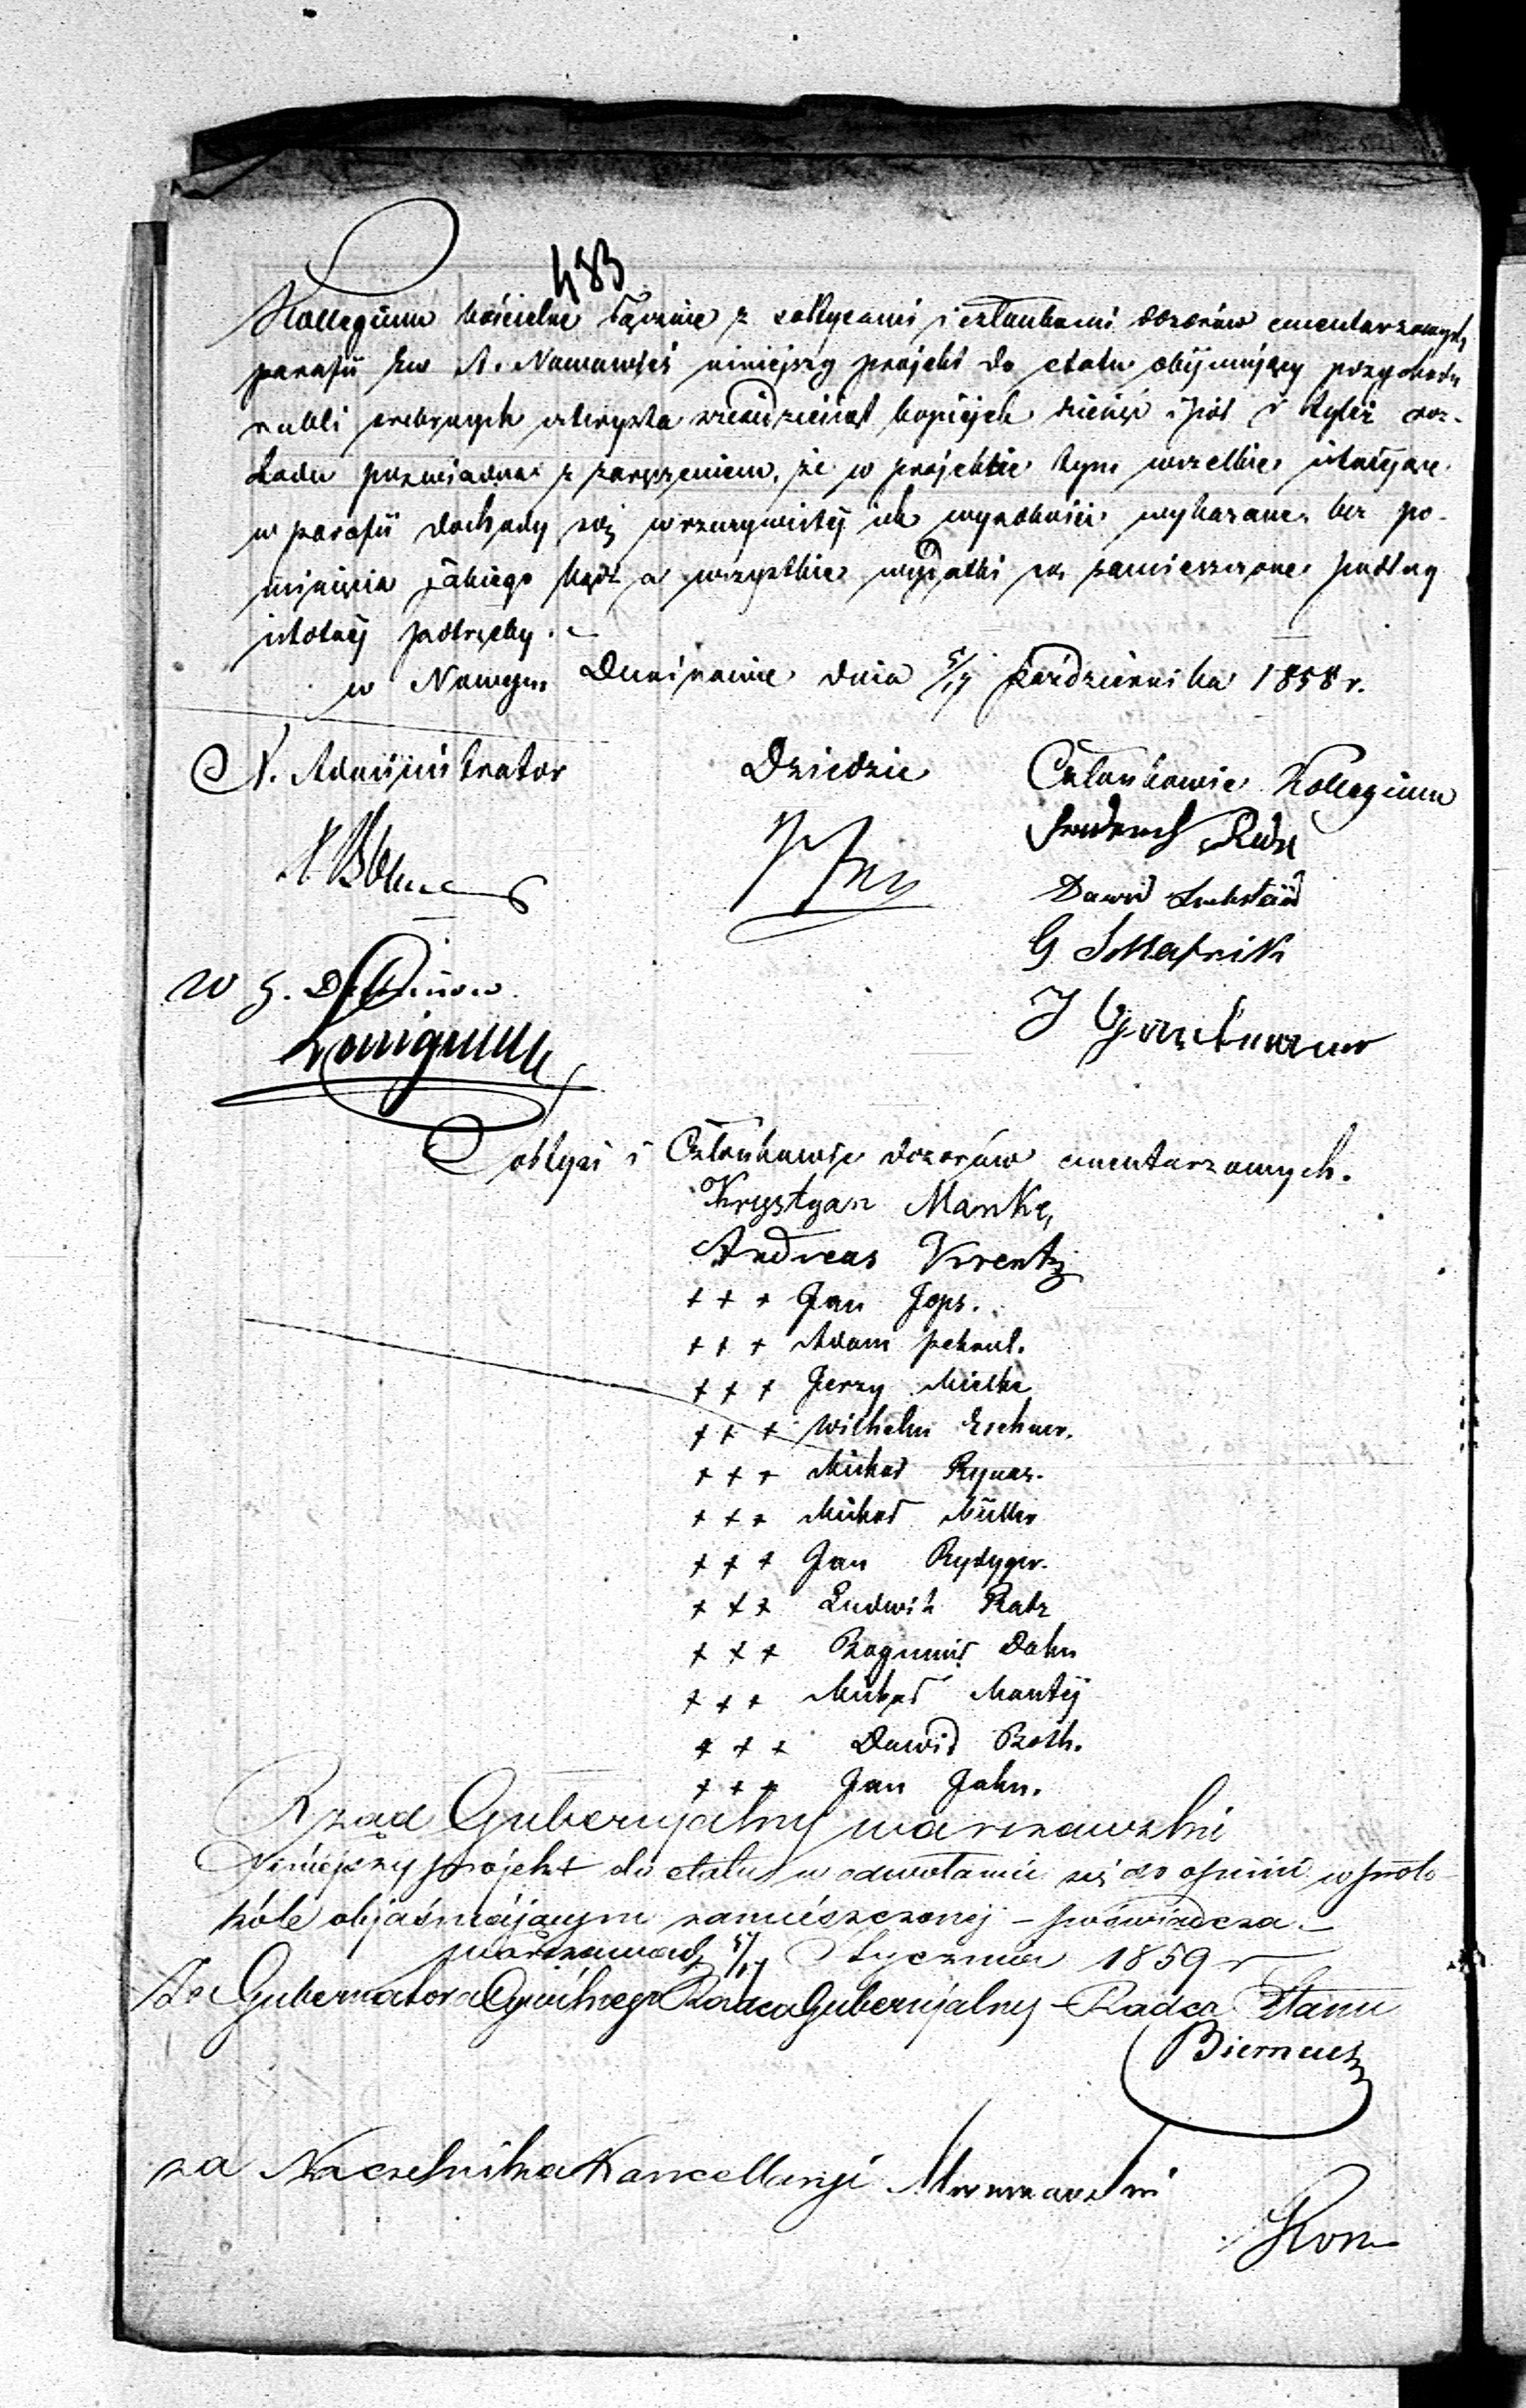 483
Kollegium kościelne łącznie z sołtysami i członkami dozorów cmentarzowych
parafii Ew A. Namawieś niniejszy projekt do etatu obejmujący przychodu
rubli srebrnych czterysta sześćdziesiąt kopiejek dziesięć i pół i tyleż roz-
chodu poświadcza z zaręczeniem, że w projekcie tym wszelkie istniejące
w parafii dochody są w rzeczywistej ich wysokości wykazane, bez po-
minięcia jakiego bądź a wszystkie wydatki są zamieszczone podług
istotnej potrzeby. –
w Nowym Duninowie dnia 5/17 Października 1858 r.
N. Administrator Dziedzic Członkowie Kollegium
Dawid
G
W G. Duninow
J
Sołtysi i Członkowie dozorów cmentarzowych.
Krystyan Manke,
Andreas Krentz
+ + + Jan Jops.
+ + + Adam
+ + + Jerzy Mielke
+ + + Wilhelm Eschner.
+ + + Michał Rynas.
+ + + Michał Müller
+ + + Jan Rydyger.
+ + + Ludwik Ratz
+ + + Bogumił Dahn
+ + + Michał Mantej
+ + + Dawid Roth.
+ + + Jan Jahn.
Rząd Gubernjalny Warszawski
Niniejszy projekt do etatu w odwołaniu się do opinii w proto-
kóle objaśniającym zamieszczonej – poświadcza. –
w Warszawie d 5/17 Stycznia 1859 r
Za Gubernatora Cywilnego Radca Gubernjalny – Radca Stanu
Biernacki
za Naczelnika Kancellaryi